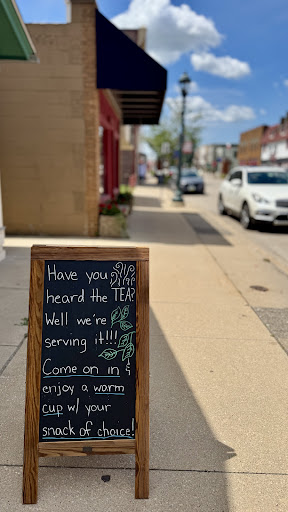 Have you
heard the TEA?
Well we're
serving it!!!
Come on in &
enjoy a warm
cup w/ your
snack of choice!